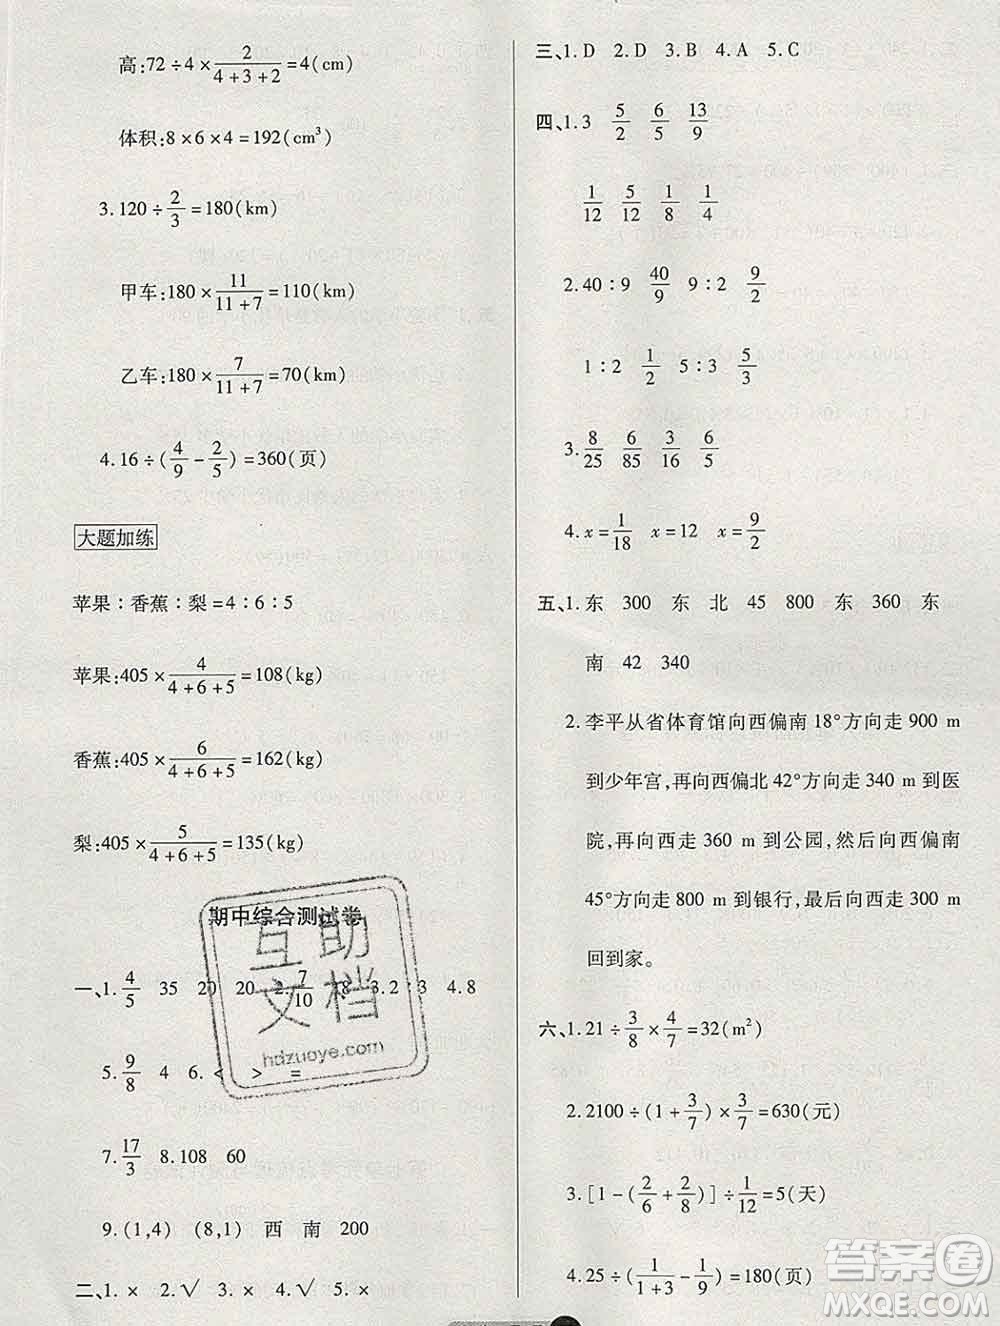 高:72÷4×2/(4+3+2)=4(cm)
体积:8×6×4=192(cm³)
3.120÷2/3=180(km)
甲车:180×11/(11+7)=110(km)
乙车:180×7/(11+7)=70(km)
4.16÷(4/9-2/5)=360(页)
大题加练
苹果:香蕉:梨=4:6:5
苹果:405×4/(4+6+5)=108(kg)
香蕉:405×6/(4+6+5)=162(kg)
梨:405×5/(4+6+5)=135(kg)
期中综合测试卷
一、1.4/5 35 20 20 2.7/10 18 3.2:3 4.8
5.9/8 4 6.< > =
7.17/3 8.108 60
9.(1,4) (8,1) 西 南 200
二、1.× 2.√ 3.× 4.√ 5.×
三、1.D 2.D 3.B 4.A 5.C
四、1.3 5/2 6/5 13/9
1/12 5/12 1/8 1/4
2.40:9 40/9 9:2 9/2
1:2 1/2 5:3 5/3
3.8/25 6/85 3/16 6/5
4.x=1/18 x=12 x=9/2
五、1.东 300 东 北 45 800 东 360 东
南 42 340
2.李平从省体育馆向西偏南18°方向走900 m
到少年宫,再向西偏北42°方向走340 m到医
院,再向西走360 m到公园,然后向西偏南
45°方向走800 m到银行,最后向西走300 m
回到家。
六、1.21÷3/8×4/7=32(m²)
2.2100÷(1+3/7)×3/7=630(元)
3.[1-(2/6+2/8)]÷1/12=5(天)
4.25÷(1/(1+3)-1/9)=180(页)
互助
文档
hdzuoye.com
答案圈
MXQE.COM